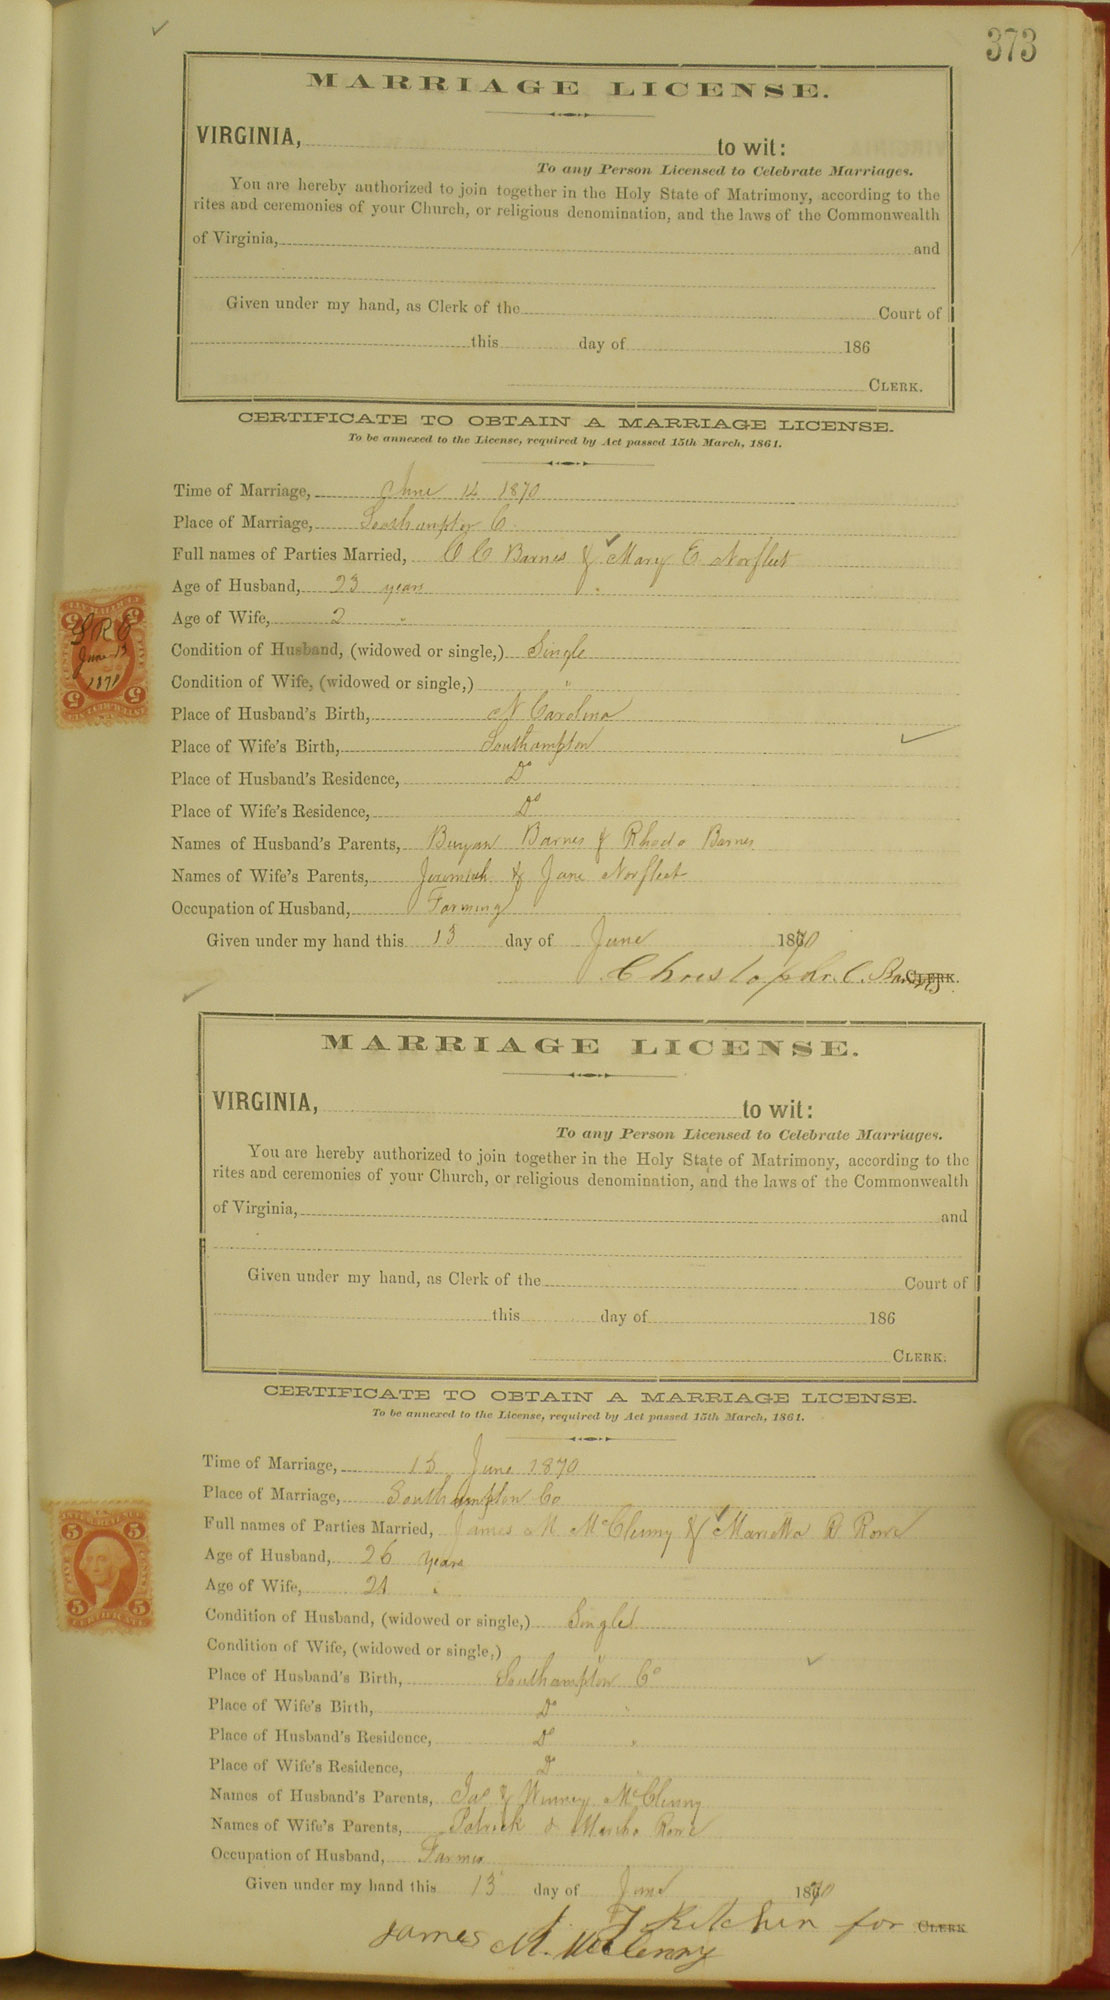 373
MARRIAGE LICENSE.
VIRGINIA, to wit:
To any Person Licensed to Celebrate Marriages.
You are hereby authorized to join together in the Holy State of Matrimony, according to the
rites and ceremonies of your Church, or religious denomination, and the laws of the Commonwealth
of Virginia, and
Given under my hand, as Clerk of the Court of
this day of 186
CLERK.
CERTIFICATE TO OBTAIN A MARRIAGE LICENSE.
To be annexed to the License, required by Act passed 15th March, 1861.
Time of Marriage, June 14 1870
Place of Marriage, Southampton C.
Full names of Parties Married, C C Barnes & Mary E. Norfleet
Age of Husband, 23 years "
Age of Wife, 2 "
Condition of Husband, (widowed or single,) Single
Condition of Wife, (widowed or single,) "
Place of Husband's Birth, N Carolina
Place of Wife's Birth, Southampton
Place of Husband's Residence, Do
Place of Wife's Residence, Do
Names of Husband's Parents, Barnes & Rhoda Barnes
Names of Wife's Parents, Jeremiah & Jane Norfleet
Occupation of Husband, Farming
Given under my hand this 13 day of June 1870
Christopher C. Barnes CLERK.
June 13
1870
MARRIAGE LICENSE.
VIRGINIA, to wit:
To any Person Licensed to Celebrate Marriages.
You are hereby authorized to join together in the Holy State of Matrimony, according to the
rites and ceremonies of your Church, or religious denomination, and the laws of the Commonwealth
of Virginia, and
Given under my hand, as Clerk of the Court of
this day of 186
CLERK.
CERTIFICATE TO OBTAIN A MARRIAGE LICENSE.
To be annexed to the License, required by Act passed 15th March, 1861.
Time of Marriage, 15 June 1870
Place of Marriage, Southampton Co
Full names of Parties Married, James M McClenny & Marietta R Rowe
Age of Husband, 26 years
Age of Wife, 21 "
Condition of Husband, (widowed or single,) Single
Condition of Wife, (widowed or single,) "
Place of Husband's Birth, Southampton Co
Place of Wife's Birth, Do "
Place of Husband's Residence, Do "
Place of Wife's Residence, Do
Names of Husband's Parents, Jas & Winney McClenny
Names of Wife's Parents, Patrick & Martha Rowe
Occupation of Husband, Farmer
Given under my hand this 13 day of June 1870
J. J Kitchin for CLERK
James M. McClenny
5 5
5 5
CERTIFICATE